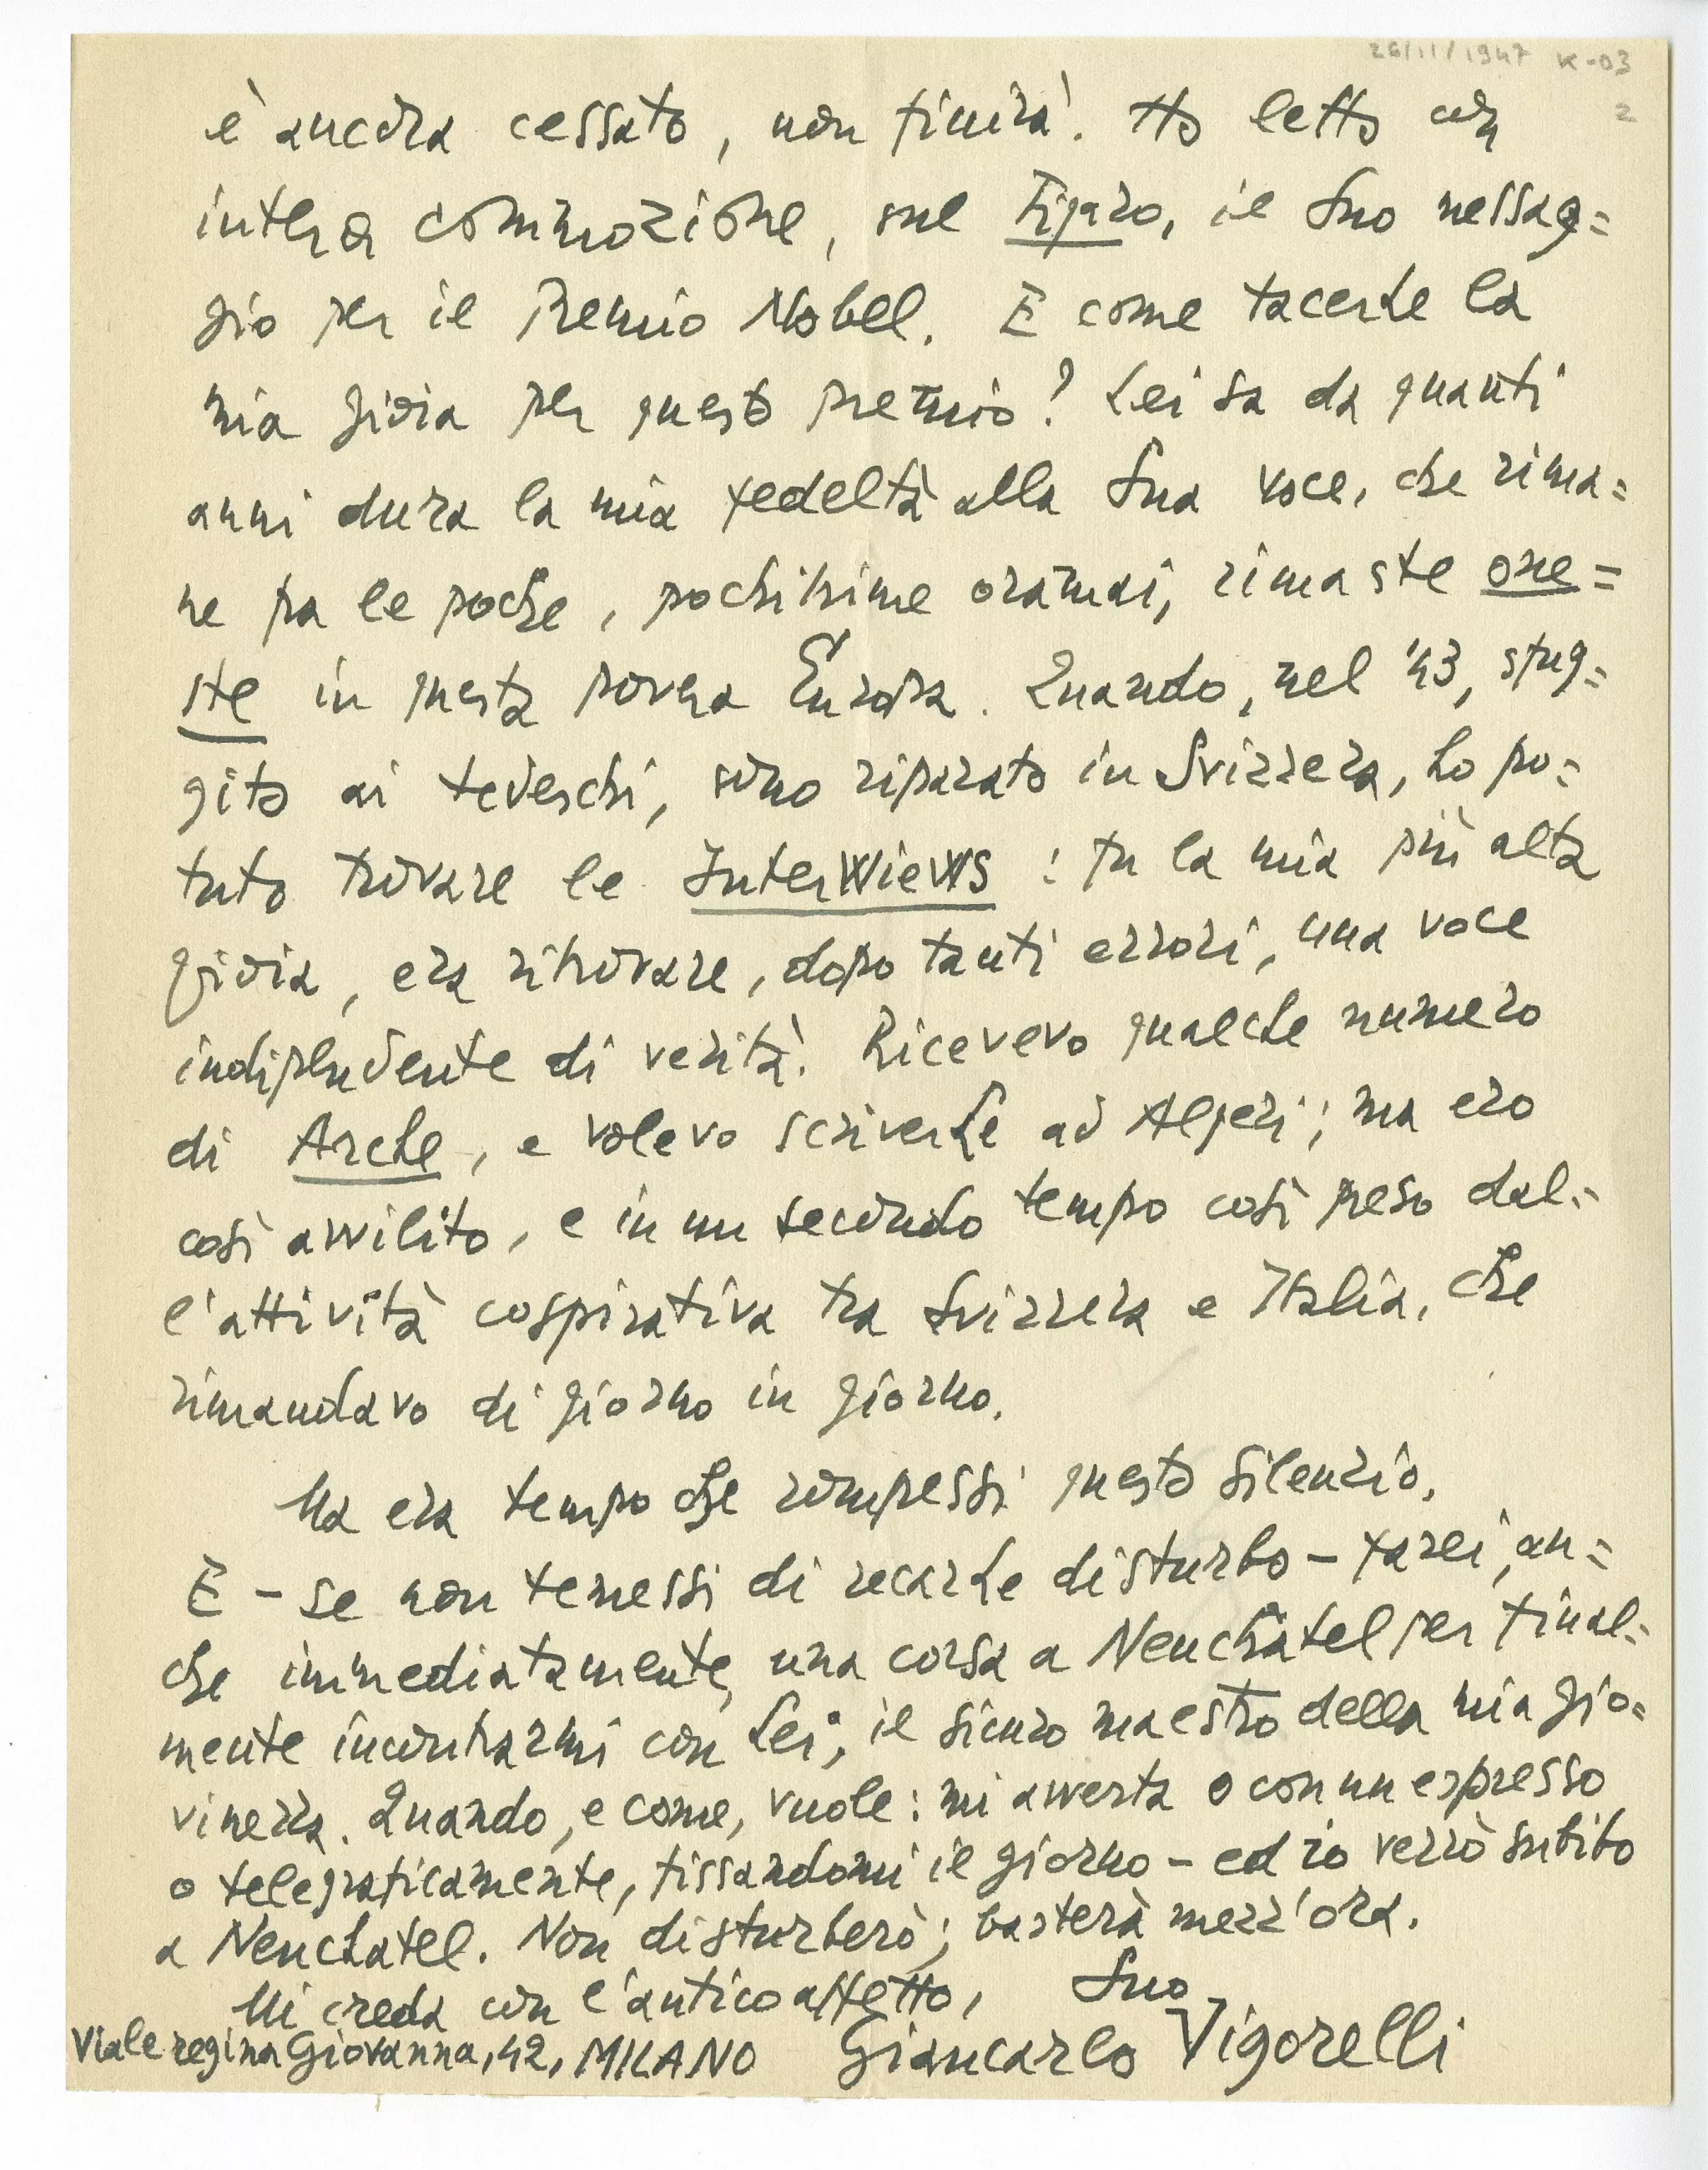 26/11/1947 K-03
2
è ancora cessato, non finirà. Ho letto con
intera commozione, sul Figaro, il Suo messag=
gio per il Premio Nobel. E come tacerLe la
mia gioia per questo premio? Lei sa da quanti
anni dura la mia fedeltà alla Sua voce, che rima=
ne fra le poche, pochissime oramai, rimaste one=
ste in questa povera Europa. Quando, nel '43, sfug=
gito ai tedeschi, sono riparato in Svizzera, ho po=
tuto trovare le InterWieWs: fu la mia più alta
gioia, era ritrovare, dopo tanti errori, una voce
indipendente di verità. Ricevevo qualche numero
di Arche, e volevo scriverLe ad Algeri; ma ero
così avvilito, e in un secondo tempo così preso dal=
l'attività cospirativa tra Svizzera e Italia, che
rimandavo di giorno in giorno.
Ma era tempo che rompessi questo silenzio.
E - se non temessi di recarLe disturbo - farei, an=
che immediatamente, una corsa a Neuchâtel per final=
mente incontrarmi con Lei, il sicuro maestro della mia gio=
vinezza. Quando, e come, vuole: mi avverta o con un espresso
o telegraficamente, fissandomi il giorno - ed io verrò subito
a Neuchatel. Non disturberò; basterà mezz'ora.
Mi creda con l'antico affetto, Suo
Viale regina Giovanna, 42, MILANO Giancarlo Vigorelli